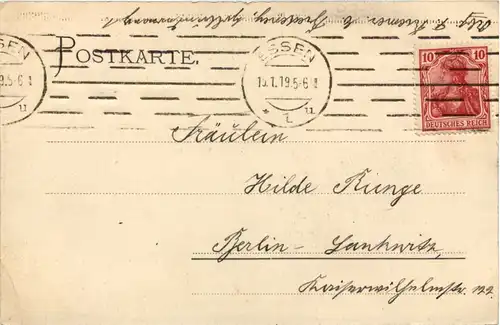 POSTKARTE.
ESSEN
15.1.19.5-6
ESSEN
19.5-6
10 10
DEUTSCHES REICH
Fräulein
Hilde Runge
Berlin-Lankwitz,
Kaiserwilhelmstr. 122.